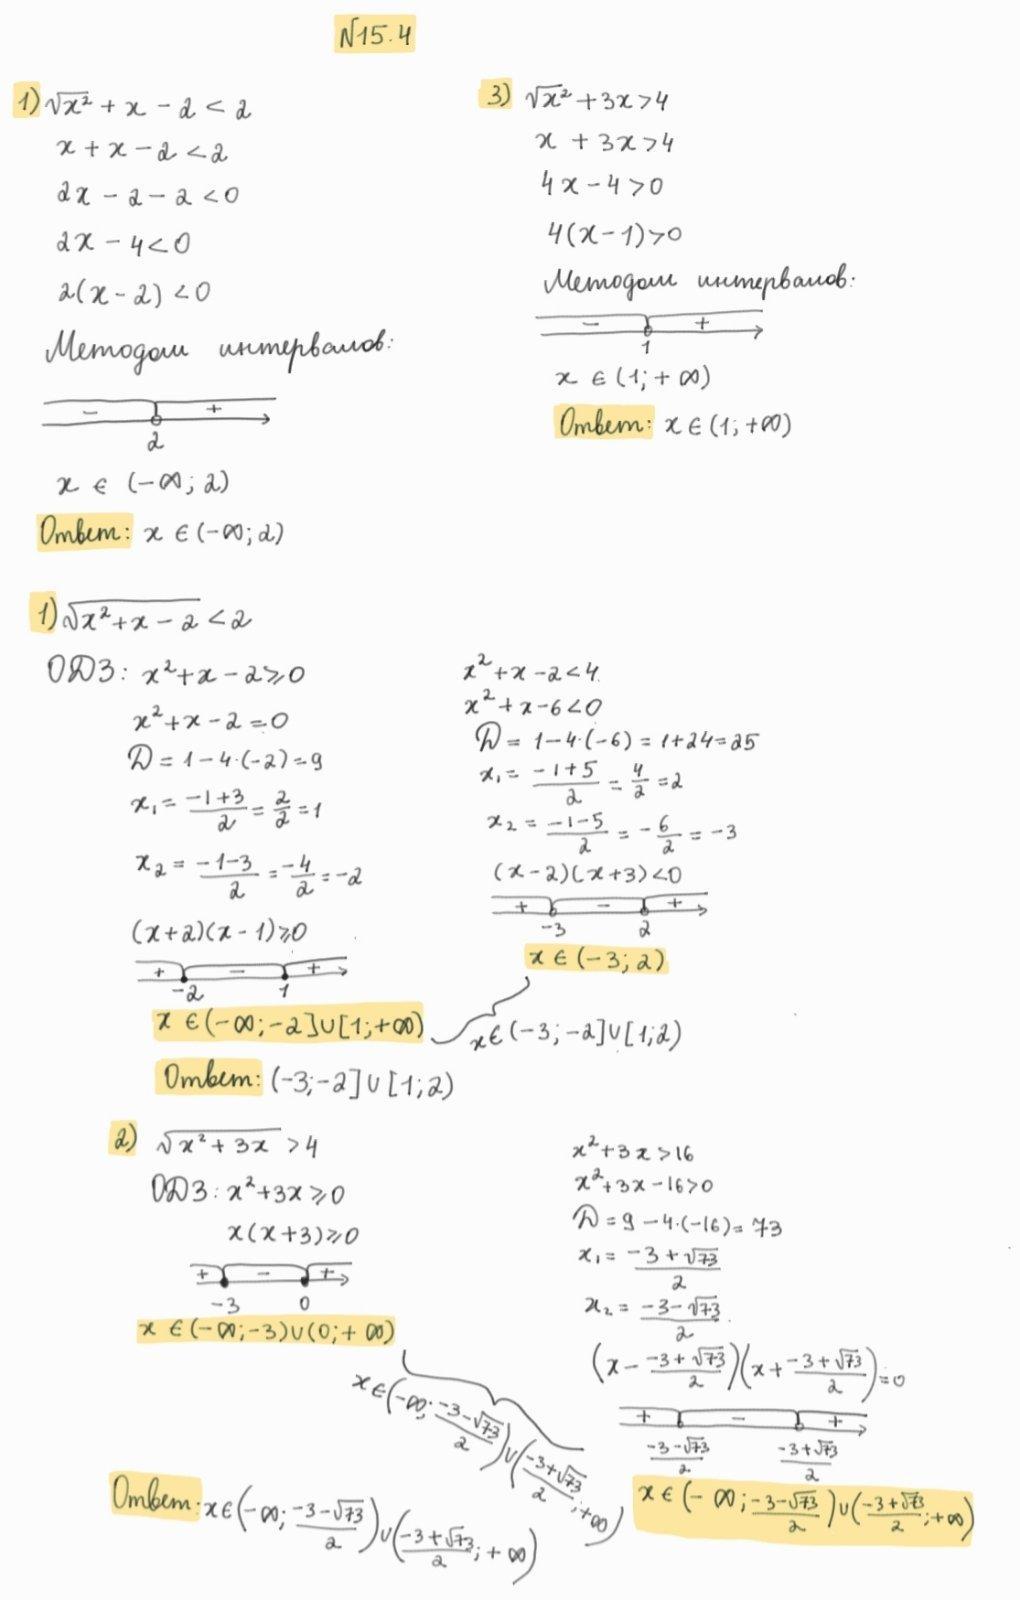 №15.4
1) √x² + x - 2 < 2
x + x - 2 < 2
2x - 2 - 2 < 0
2x - 4 < 0
2(x - 2) < 0
Методом интервалов:
- +
2
x ∈ (-∞; 2)
Ответ: x ∈ (-∞; 2)
3) √x² + 3x > 4
x + 3x > 4
4x - 4 > 0
4(x - 1) > 0
Методом интервалов:
- +
1
x ∈ (1; + ∞)
Ответ: x ∈ (1; +∞)
1) √(x² + x - 2) < 2
ОДЗ: x² + x - 2 ⩾ 0
x² + x - 2 = 0
D = 1 - 4·(-2) = 9
x₁ = (-1+3)/2 = 2/2 = 1
x₂ = (-1-3)/2 = -4/2 = -2
(x+2)(x-1) ⩾ 0
+ - +
-2 1
x ∈ (-∞; -2] ∪ [1; +∞)
x² + x - 2 < 4
x² + x - 6 < 0
D = 1 - 4·(-6) = 1+24 = 25
x₁ = (-1+5)/2 = 4/2 = 2
x₂ = (-1-5)/2 = -6/2 = -3
(x-2)(x+3) < 0
+ - +
-3 2
x ∈ (-3; 2)
x ∈ (-3; -2] ∪ [1; 2)
Ответ: (-3; -2] ∪ [1; 2)
2) √(x² + 3x) > 4
ОДЗ: x² + 3x ⩾ 0
x(x+3) ⩾ 0
+ - +
-3 0
x ∈ (-∞; -3) ∪ (0; + ∞)
x² + 3x > 16
x² + 3x - 16 > 0
D = 9 - 4·(-16) = 73
x₁ = (-3 + √73)/2
x₂ = (-3 - √73)/2
(x - (-3 + √73)/2)(x + (-3 + √73)/2) = 0
+ - +
(-3 - √73)/2 (-3 + √73)/2
x ∈ (-∞; (-3-√73)/2) ∪ ((-3+√73)/2; +∞)
x ∈ (-∞; (-3-√73)/2) ∪ ((-3+√73)/2; +∞)
Ответ: x ∈ (-∞; (-3-√73)/2) ∪ ((-3+√73)/2; +∞)